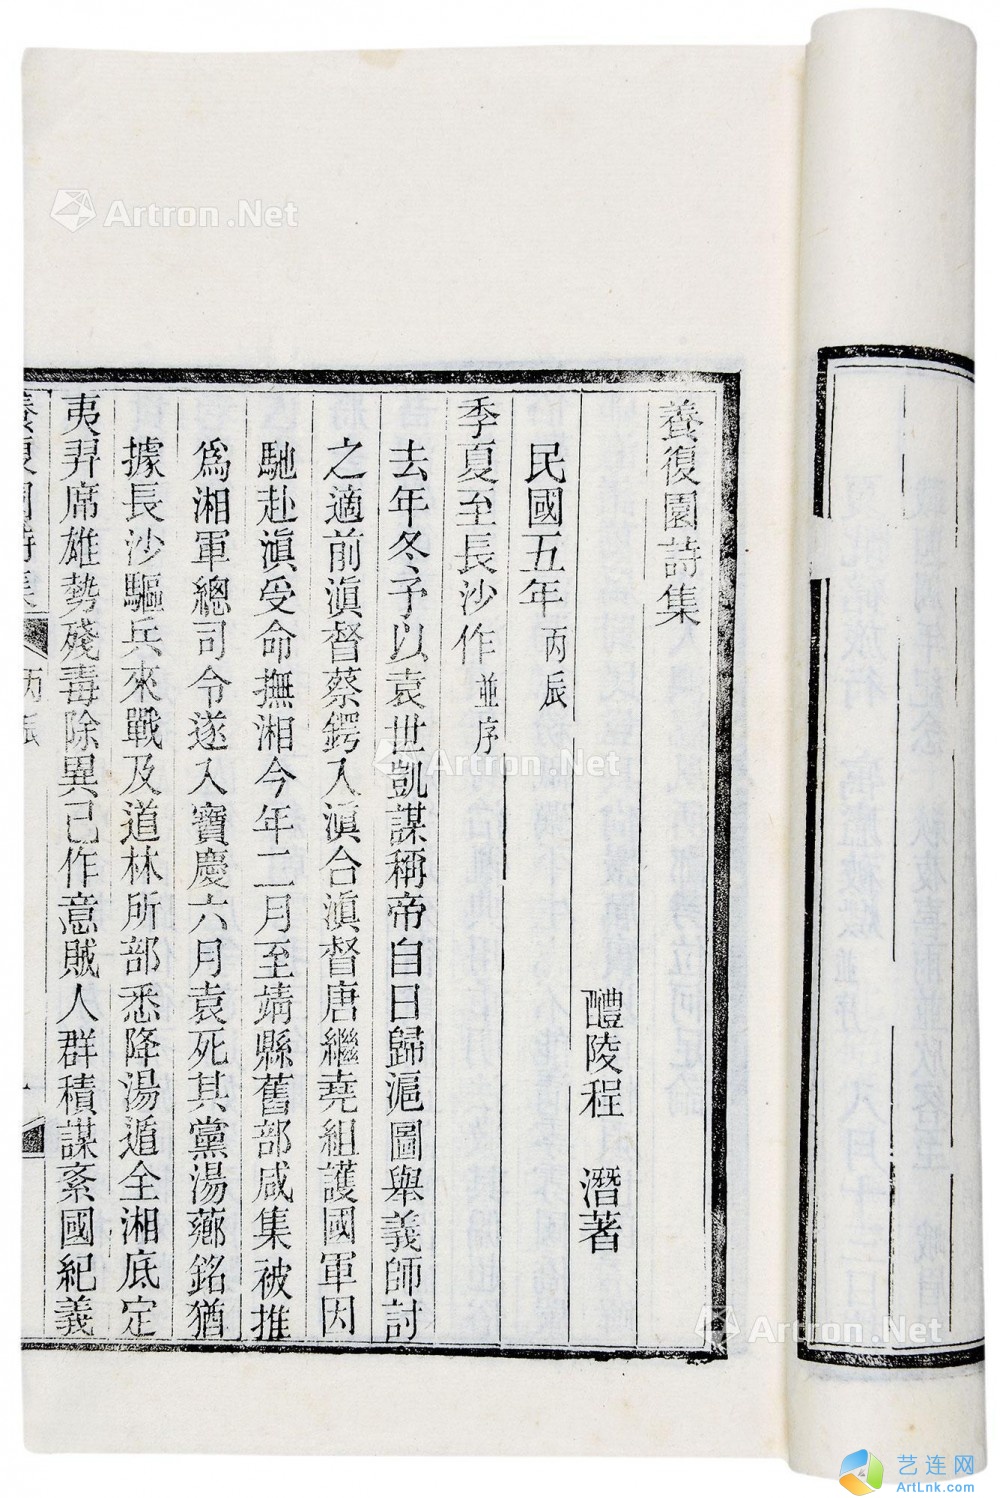 養復園詩集
醴陵程　潛著
民國五年 丙辰
季夏至長沙作 並序
去年冬予以袁世凱謀稱帝自日歸滬圖舉義師討
之適前滇督蔡鍔入滇合滇督唐繼堯組護國軍因
馳赴滇受命撫湘今年二月至靖縣舊部咸集被推
爲湘軍總司令遂入寶慶六月袁死其黨湯薌銘猶
據長沙驅兵來戰及道林所部悉降湯遁全湘底定
夷羿席雄勢殘毒除異己作意賊人群積謀紊國紀義
養復園詩集 丙辰 一
Artron.Net
Artron.Net
Artron.Net
艺连网
ArtLnk.com